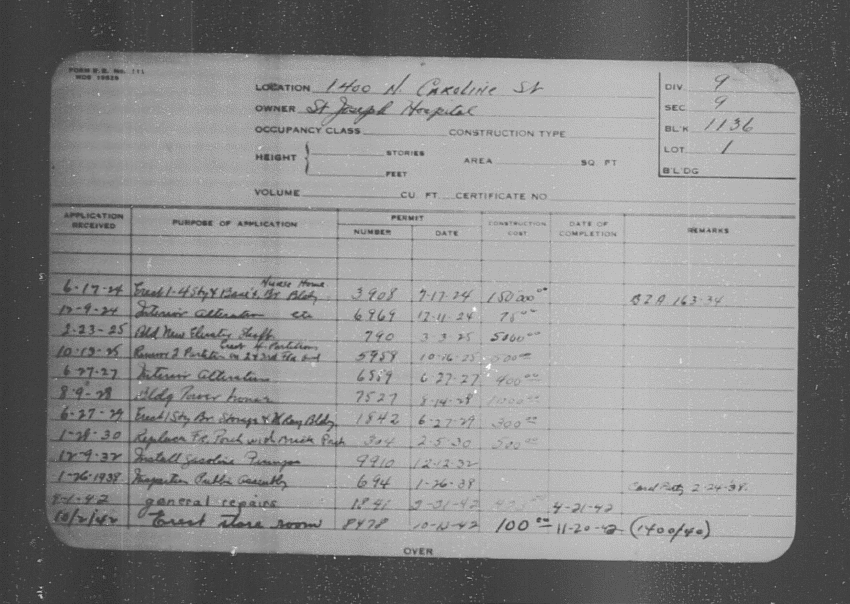 FORM B.E. No. 111
LOCATION 1400 N. Caroline St
OWNER St Joseph Hospital
OCCUPANCY CLASS CONSTRUCTION TYPE
HEIGHT STORIES FEET AREA SQ. FT
VOLUME CU. FT. CERTIFICATE NO
DIV. 9
SEC. 9
BL'K 1136
LOT 1
B'L'DG
APPLICATION RECEIVED PURPOSE OF APPLICATION PERMIT NUMBER DATE CONSTRUCTION COST DATE OF COMPLETION REMARKS
Nurse Home
6-17-24 Erect 1-4 Sty & Base't. Br Bldg. 3908 7-17-24 150000 BZA 163-34
12-9-24 Interior alteration etc 6969 12-11-24 75
2-23-25 Bld New Elevator Shaft 790 3-3-25 5000
Erect 4 Partitions
10-13-25 Remove 2 Partition on 2 & 3rd Fls and 5958 10-16-25
6-27-27 Interior alteration 6-27-27 400
8-9-28 Bldg Power house 7527 8-14-28
6-27-29 Erect 1 Sty Br. Storage & X Ray Bldg. 1842 6-27-29 300
1-29-30 Replace Fr. Porch with Brick Porch 304 2-5-30 500
12-9-32 Install Gasoline Pumps 9910 12-12-32
1-26-1938 Inspection Public Assembly 694 1-26-38 2-24-38
4-1-42 general repairs 1841 3-31-42 4-21-42
10/2/42 Erect store room 8478 10-12-42 100 11-20-42 (1400/40)
OVER